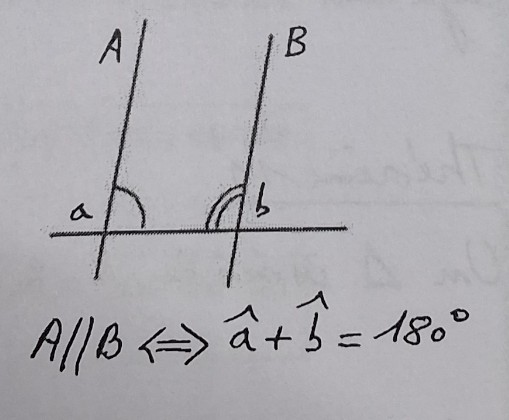 A B
a b
A//B <=> â + b̂ = 180°